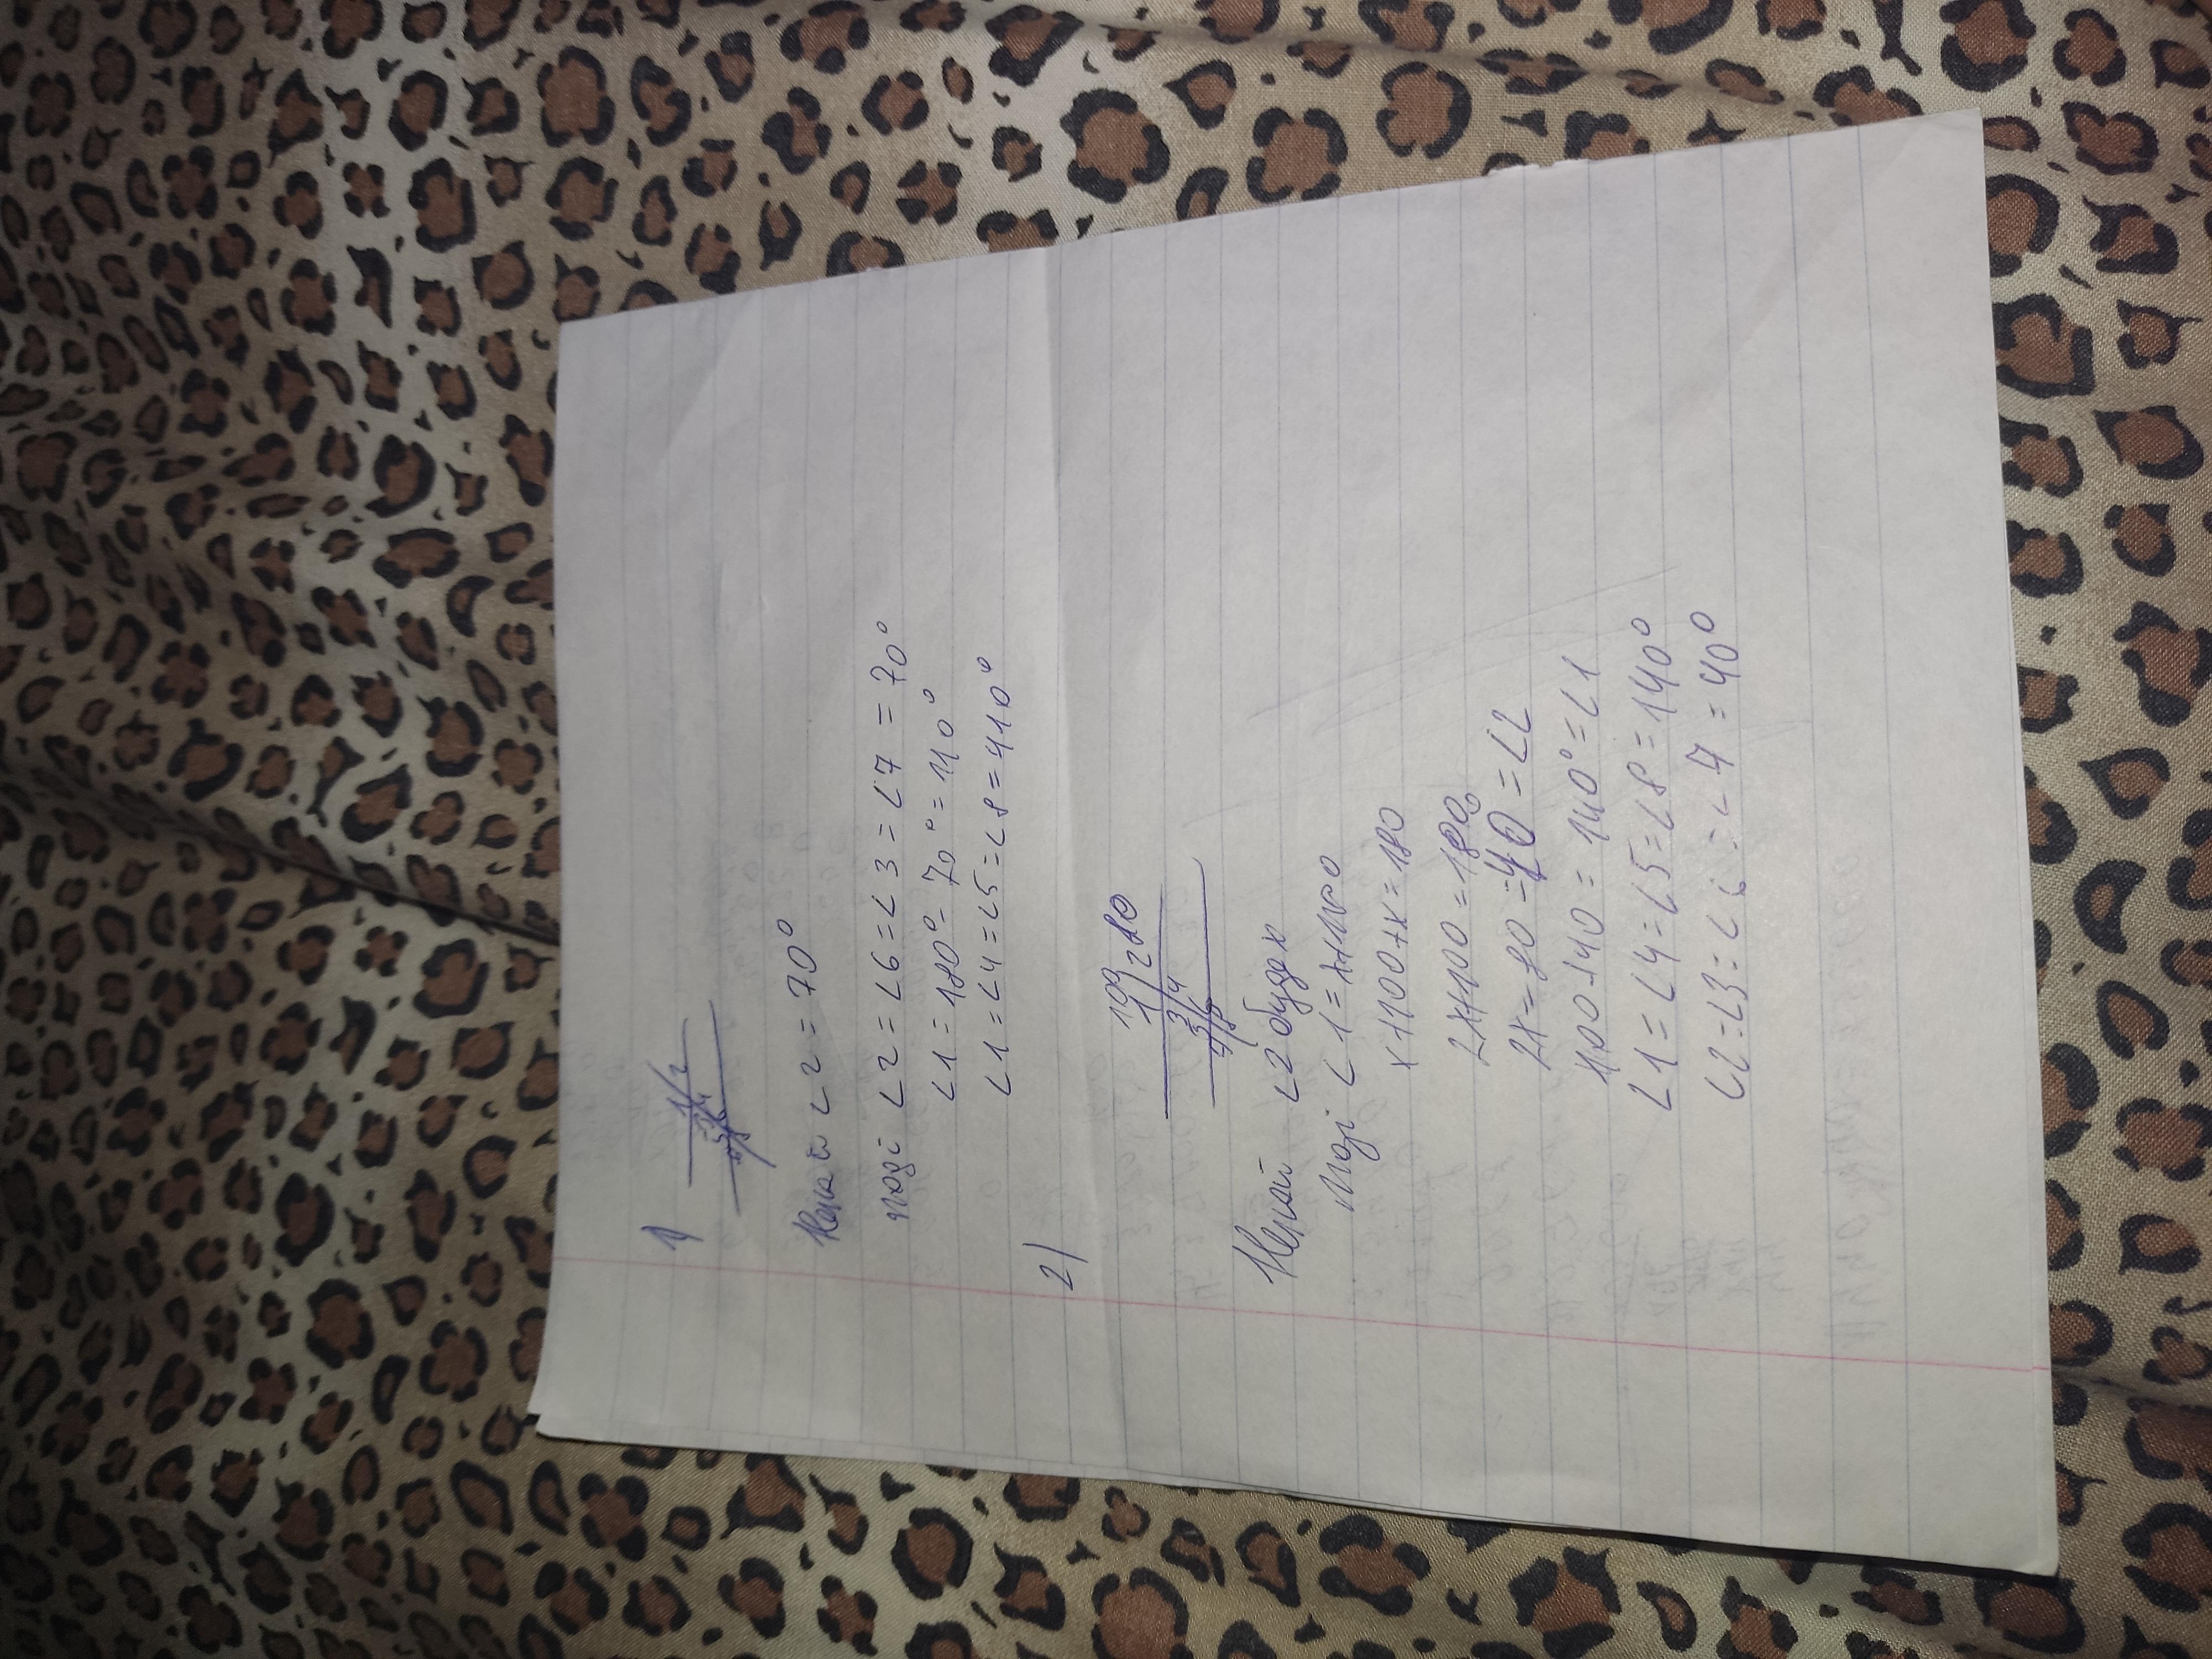 1)
1 2
3 4
5 6
Нехай ∠2 = 70°
тоді ∠2 = ∠6 = ∠3 = ∠7 = 70°
∠1 = 180° - 70° = 110°
∠1 = ∠4 = ∠5 = ∠8 = 110°
2)
1 2
3 4
5 6
Нехай ∠2 буде x
тоді ∠1 = x+100
x+100+x=180
2x+100=180
2x=80=40=∠2
180-40=140°=∠1
∠1=∠4=∠5=∠8=140°
∠2=∠3=∠6=∠7=40°